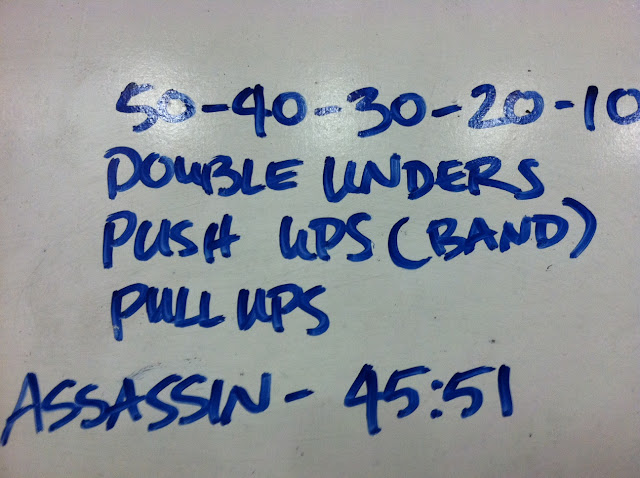 50-40-30-20-10
DOUBLE UNDERS
PUSH UPS (BAND)
PULL UPS
ASSASSIN - 45:51